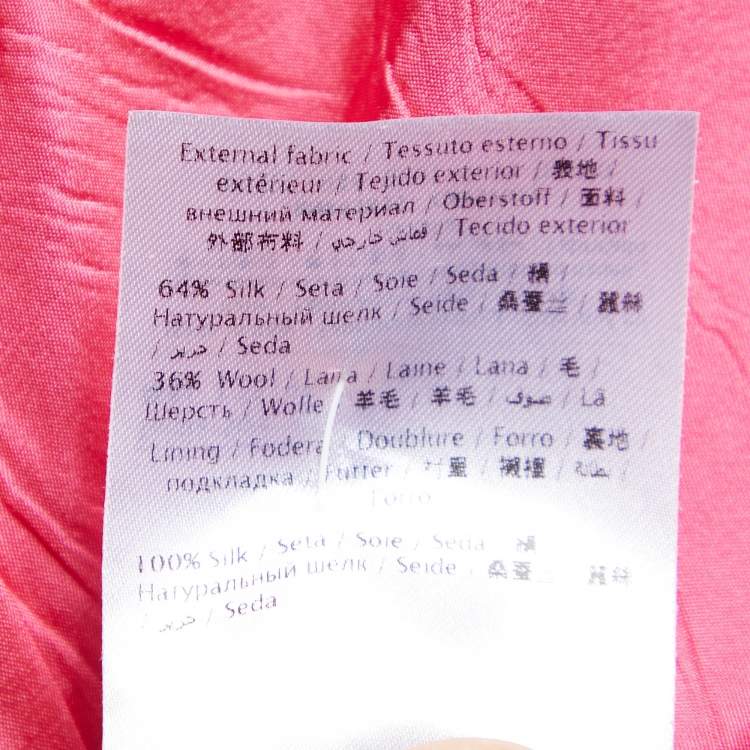 External fabric / Tessuto esterno / Tissu
extérieur / Tejido exterior / 表地 /
внешний материал / Oberstoff / 面料 /
外部布料 / قماش خارجي / Tecido exterior
64% Silk / Seta / Soie / Seda / 絹 /
Натуральный шелк / Seide / 桑蚕丝 / 蠶絲
/ حرير / Seda
36% Wool / Lana / Laine / Lana / 毛 /
Шерсть / Wolle / 羊毛 / 羊毛 / صوف / Lã
Lining / Fodera / Doublure / Forro / 裏地 /
подкладка / Futter / 衬里 / 襯裡 / بطانة /
Forro
100% Silk / Seta / Soie / Seda / 絹
Натуральный шелк / Seide / 桑蚕丝 蠶絲
/ حرير / Seda